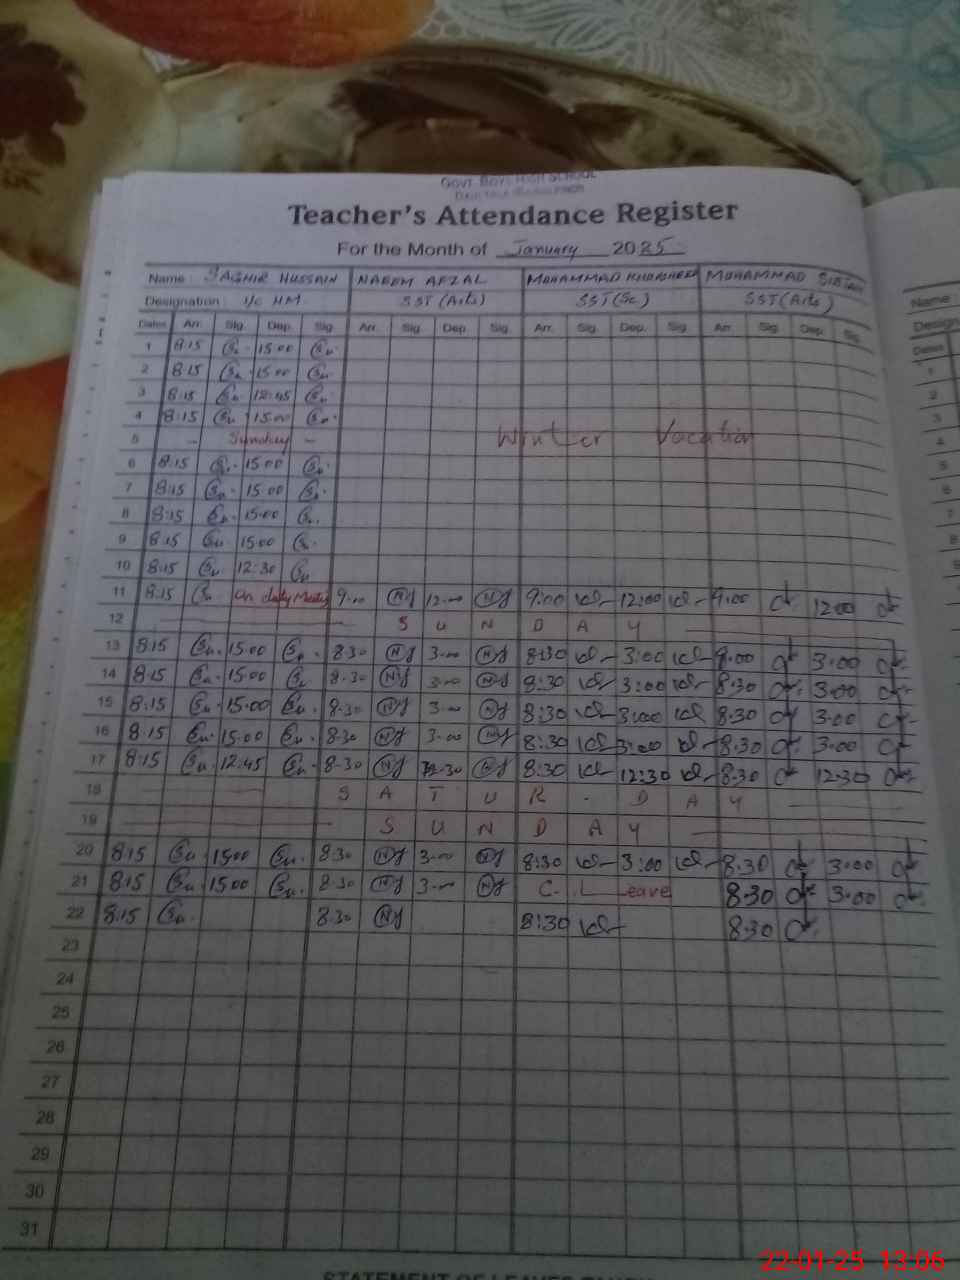 GOVT. BOYS HIGH SCHOOL
Teacher's Attendance Register
For the Month of January 2025
Name : SAGHIR HUSSAIN NAEEM AFZAL MOHAMMAD KHURSHEED MOHAMMAD
Designation : I/C HM. SST (Arts) SST (Sc) SST (Arts)
Dates Arr. Sig. Dep. Sig. Arr. Sig. Dep. Sig. Arr. Sig. Dep. Sig. Arr. Sig. Dep. Sig.
1 8:15 15:00
2 8:15 15:00
3 8:15 12:45
4 8:15 15:00
5 – Sunday – Winter Vacation
6 8:15 15:00
7 8:15 15:00
8 8:15 15:00
9 8:15 15:00
10 8:15 12:30
11 8:15 on duty Meeting 9:00 12:00 9:00 12:00 9:00 12:00
12 S U N D A Y
13 8:15 15:00 8:30 3:00 8:30 3:00 9:00 3:00
14 8:15 15:00 8:30 3:00 8:30 3:00 8:30 3:00
15 8:15 15:00 8:30 3:00 8:30 3:00 8:30 3:00
16 8:15 15:00 8:30 3:00 8:30 3:00 8:30 3:00
17 8:15 12:45 8:30 12:30 8:30 12:30 8:30 12:30
18 S A T U R - D A Y
19 S U N D A Y
20 8:15 15:00 8:30 3:00 8:30 3:00 8:30 3:00
21 8:15 15:00 8:30 3:00 C. Leave 8:30 3:00
22 8:15 8:30 8:30 8:30
23
24
25
26
27
28
29
30
31
Name
Design
Dates
1
2
3
4
5
6
7
8
9
22-01-25 13:06